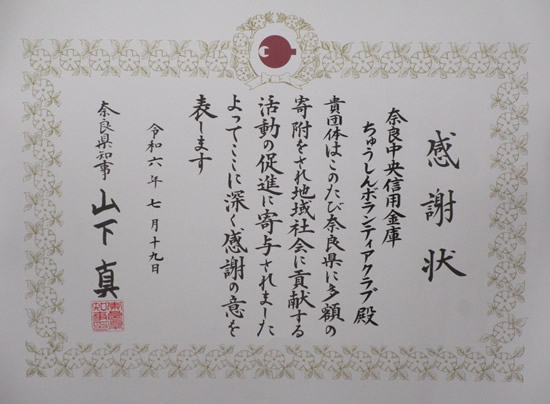 感謝状
奈良中央信用金庫
ちゅうしんボランティアクラブ殿
貴団体はこのたび奈良県に多額の
寄附をされ地域社会に貢献する
活動の促進に寄与されました
よってここに深く感謝の意を
表します
令和六年七月十九日
奈良県知事 山下真